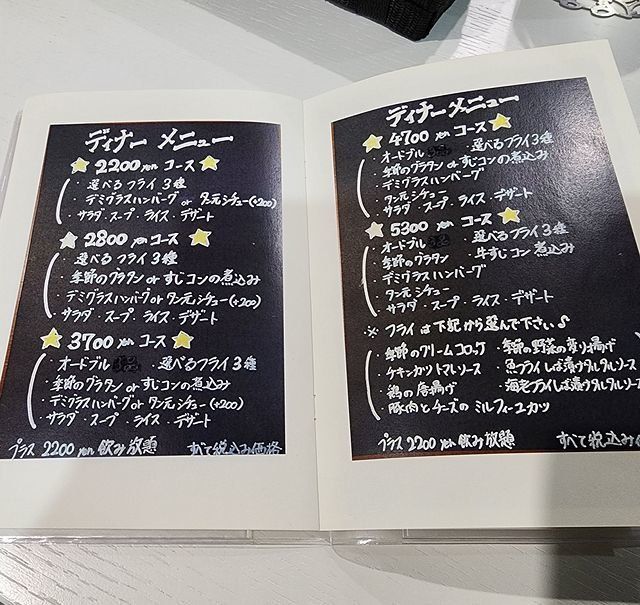 ディナー メニュー
2200 yen コース
・選べるフライ3種
・デミグラスハンバーグ or タン元シチュー(+200)
サラダ・スープ・ライス・デザート
2800 yen コース
・選べるフライ3種
・季節のグラタン or すじコンの煮込み
・デミグラスハンバーグ or タン元シチュー(+200)
サラダ・スープ・ライス・デザート
3700 yen コース
・オードブル ・選べるフライ3種
・季節のグラタン or すじコンの煮込み
・デミグラスハンバーグ or タン元シチュー(+200)
サラダ・スープ・ライス・デザート
プラス 2200 yen 飲み放題 すべて税込み価格
ディナー メニュー
4700 yen コース
・オードブル ・選べるフライ3種
・季節のグラタン or すじコンの煮込み
・デミグラスハンバーグ
・タン元シチュー
サラダ・スープ・ライス・デザート
5300 yen コース
・オードブル ・選べるフライ3種
・季節のグラタン ・牛すじコン煮込み
・デミグラスハンバーグ
・タン元シチュー
サラダ・スープ・ライス・デザート
※ フライは下記から選んで下さい♪
・季節のクリームコロッケ ・季節の野菜の寄り揚げ
・チキンカツトマトソース ・魚フライしば漬けタルタルソース
・鶏の唐揚げ ・海老フライしば漬けタルタルソース
・豚肉とチーズのミルフィーユカツ
プラス 2200 yen 飲み放題 すべて税込み価